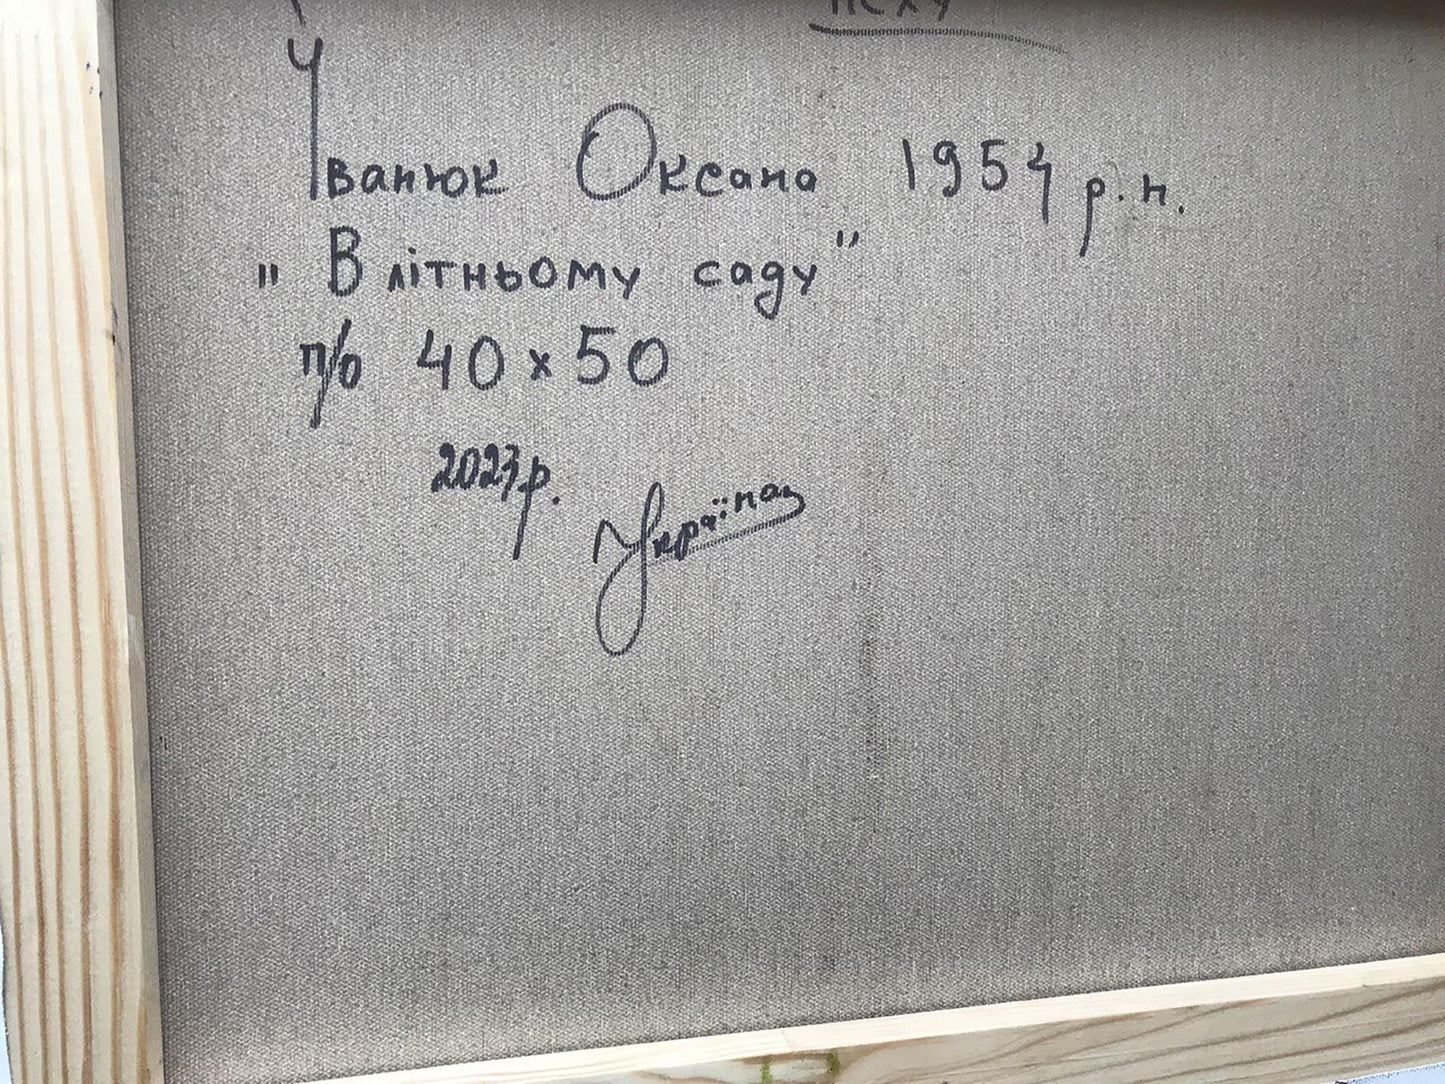 Іванюк Оксана 1954 р.н.
"В літньому саду"
п/о 40x50
2023р.
Україна